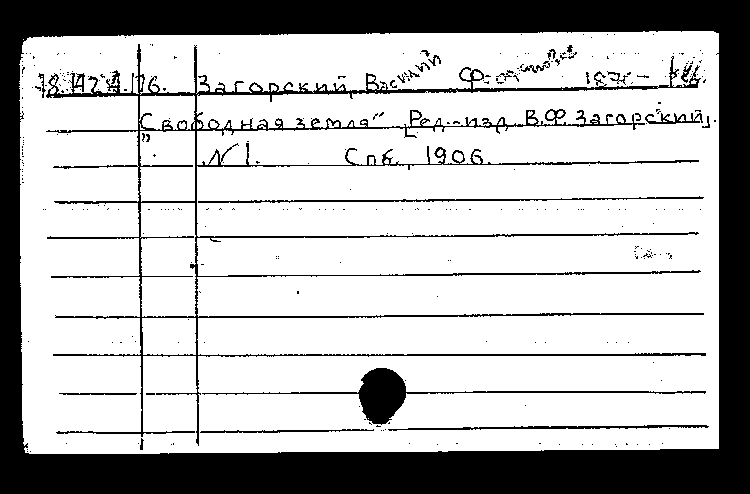 Загорский, Василий Феодосьевич 1871-
„Свободная земля“ [Ред.-изд. В.Ф. Загорский].
N 1. Спб., 1906.